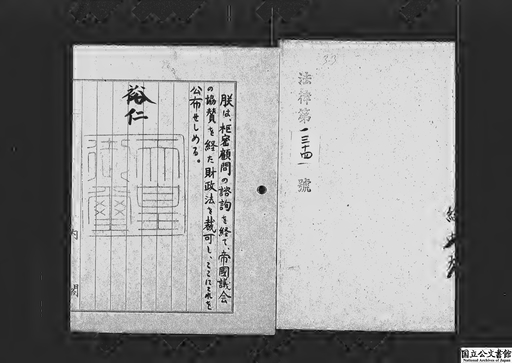 法律第三十四號
朕は、枢密顧問の諮詢を経て、帝國議会
の協賛を経た財政法を裁可し、ここにこれを
公布せしめる。
裕仁
天皇
御璽
内閣
国立公文書館
National Archives of Japan